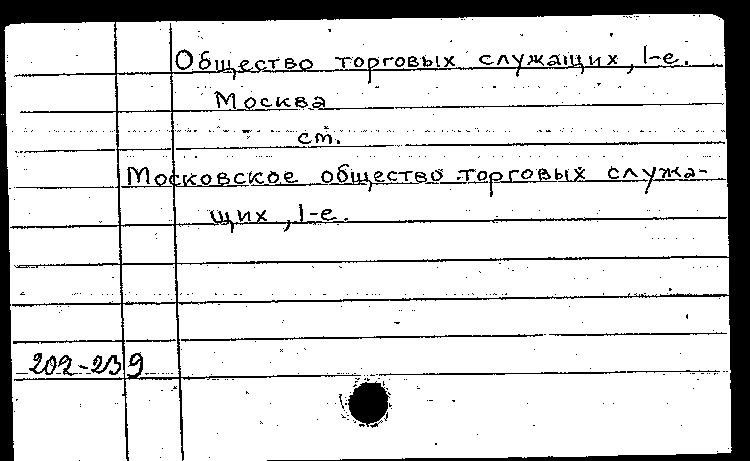 Общество торговых служащих, 1-е.
Москва
ст.
Московское общество торговых служа-
щих, 1-е.
202-239